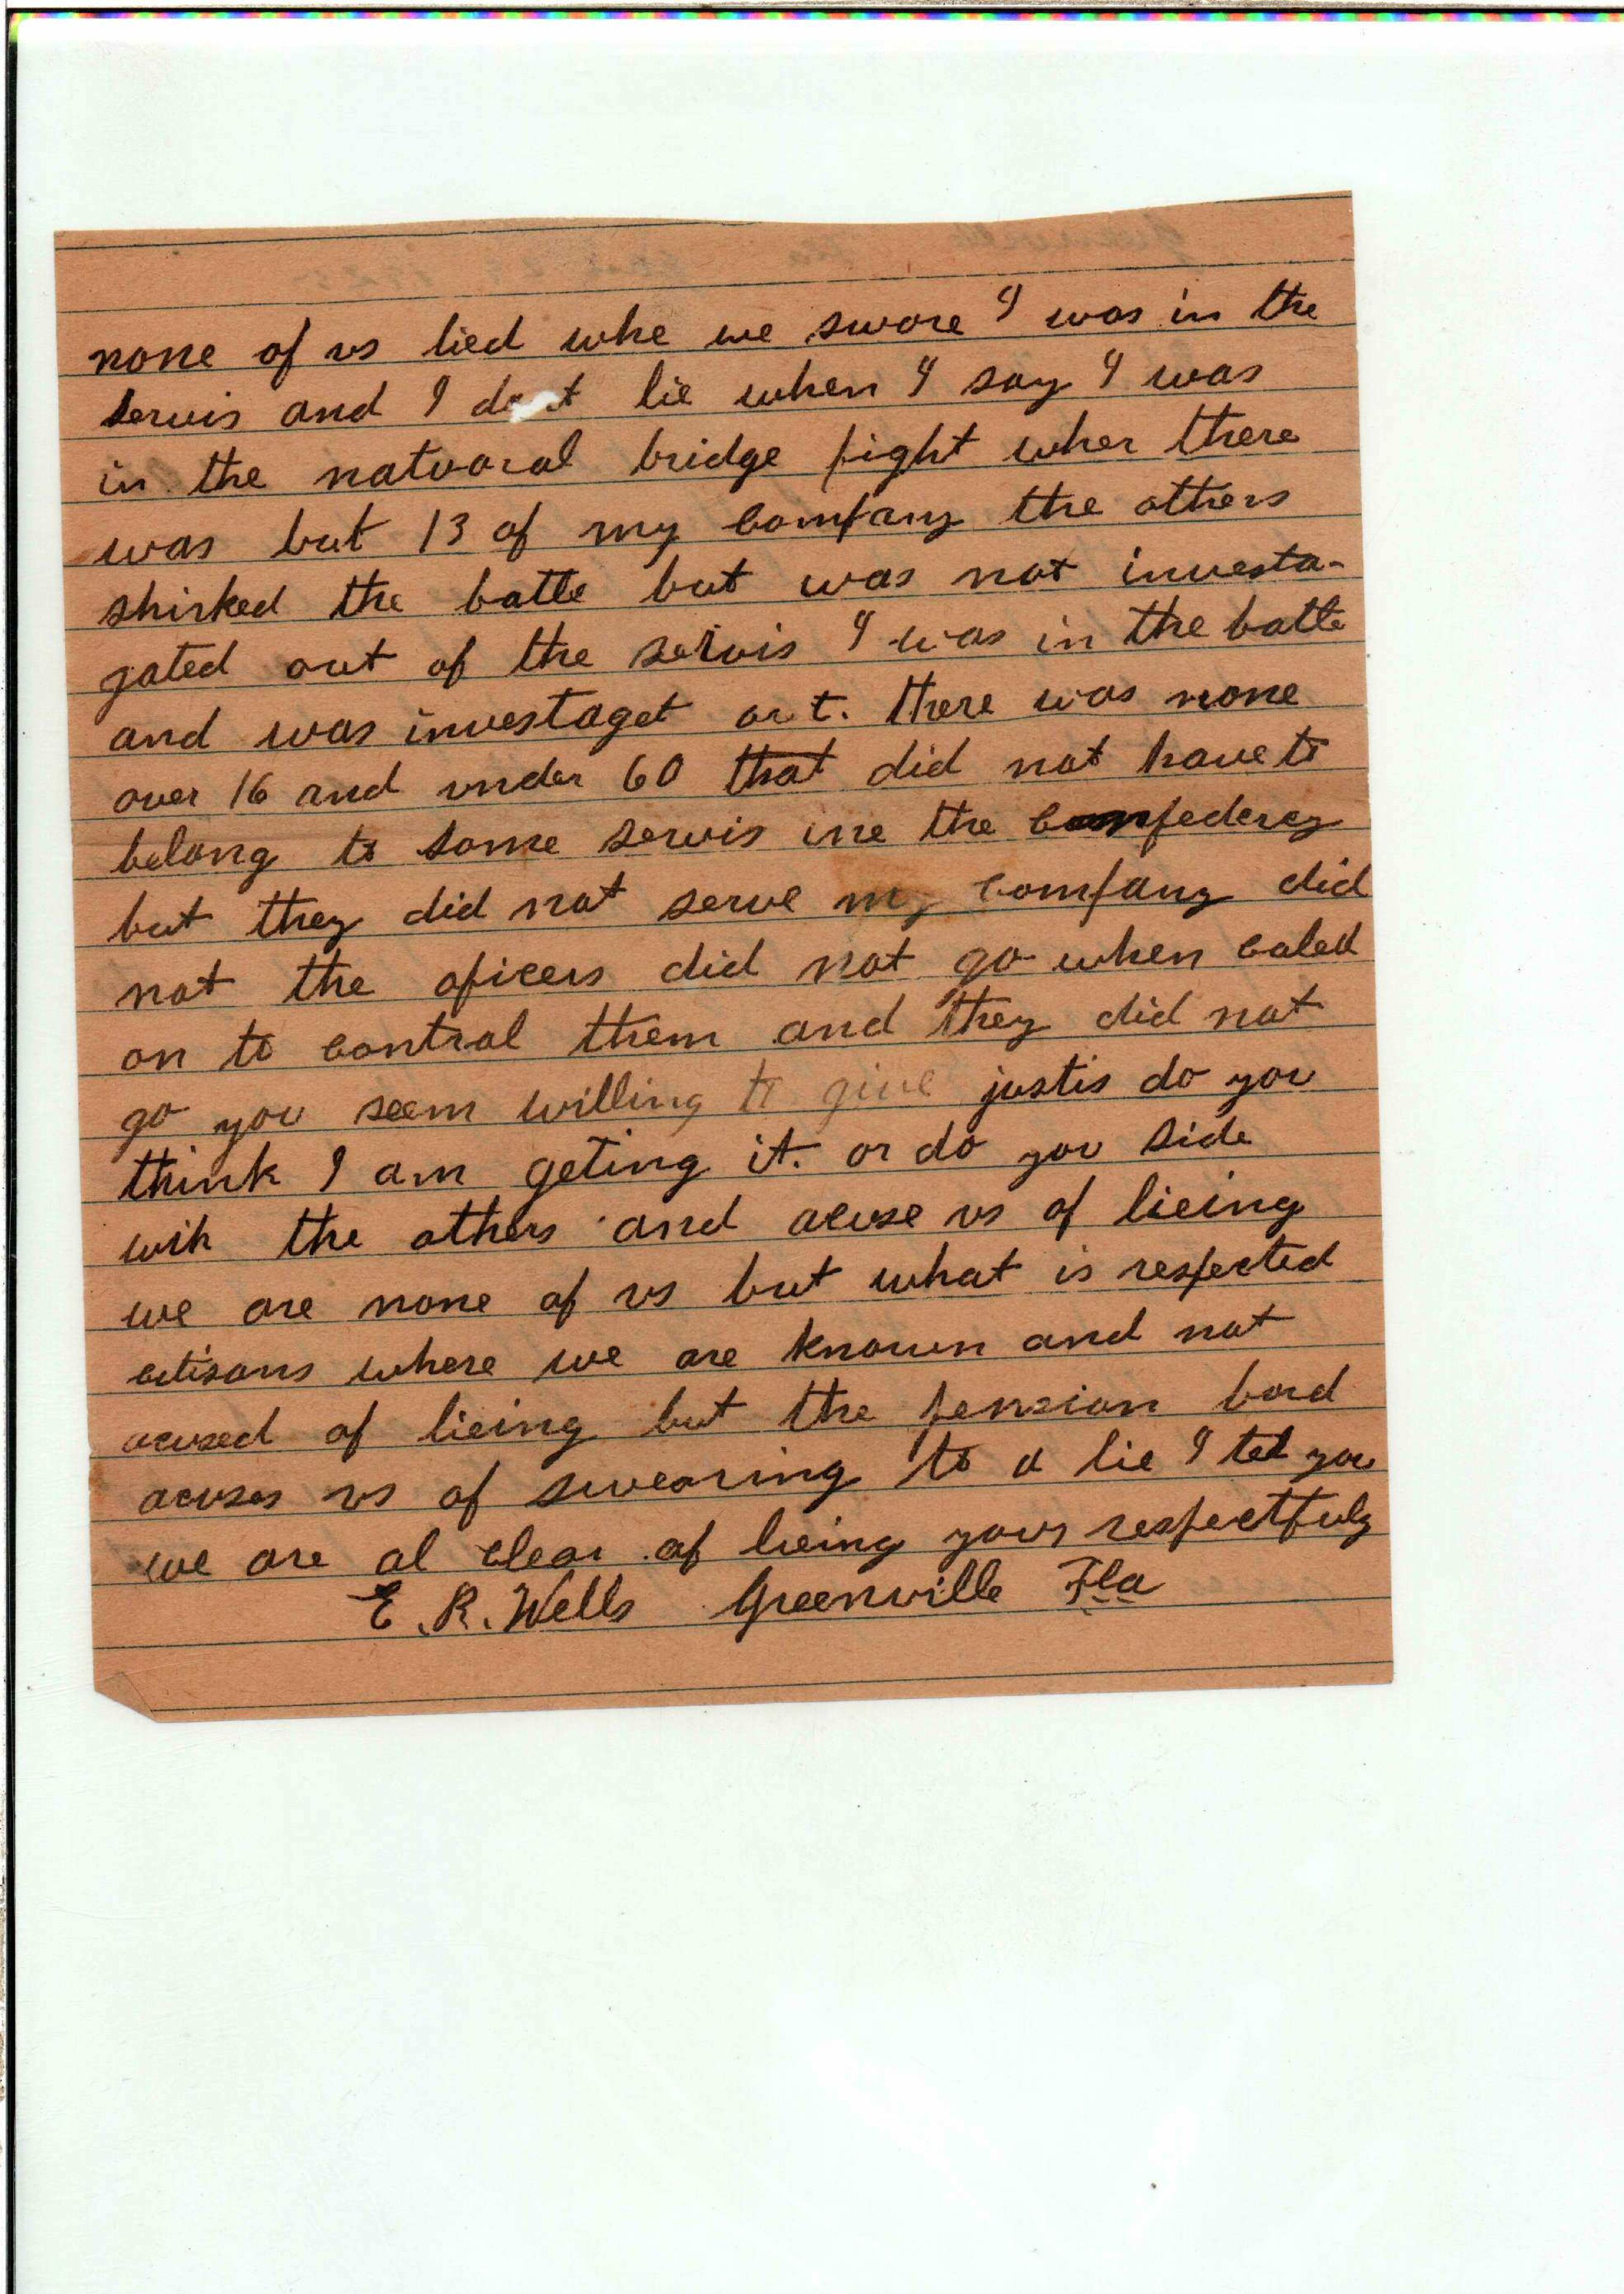 none of us lied whe we swore I was in the
servis and I dont lie when I say I was
in the natuaral bridge fight wher there
was but 13 of my company the others
shirked the batle but was not investa-
gated out of the servis I was in the batle
and was investaget out. there was none
over 16 and under 60 that did not have to
belong to some servis ine the confedercy
but they did not serve my company did
not the oficers did not go when caled
on to control them and they did not
go you seem willing to give justis do you
think I am geting it. or do you side
wih the others and acuse us of lieing
we are none of us but what is respected
citisons where we are known and not
acused of lieing but the pension bord
acuses us of swearing to a lie I tel you
we are al clear of lieing yours respectfuly
E. R. Wells Greenville Fla